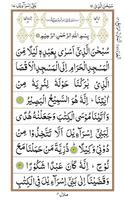 سُبْحٰنَ الَّذِيْٓ ١٥
بِسْمِ اللّٰهِ الرَّحْمٰنِ الرَّحِيْمِ
سُبْحٰنَ الَّذِيْٓ اَسْرٰى بِعَبْدِهٖ لَيْلًا مِّنَ
الْمَسْجِدِ الْحَرَامِ اِلَى الْمَسْجِدِ الْاَقْصَا
الَّذِيْ بٰرَكْنَا حَوْلَهٗ لِنُرِيَهٗ مِنْ
اٰيٰتِنَا ؕ اِنَّهٗ هُوَ السَّمِيْعُ الْبَصِيْرُ
وَاٰتَيْنَا مُوْسَى الْكِتٰبَ وَجَعَلْنٰهُ هُدًى
لِّبَنِيْٓ اِسْرَآءِيْلَ اَلَّا تَتَّخِذُوْا مِنْ
دُوْنِيْ وَكِيْلًا ذُرِّيَّةَ مَنْ حَمَلْنَا مَعَ
نُوْحٍ ؕ اِنَّهٗ كَانَ عَبْدًا شَكُوْرًا
وَقَضَيْنَآ اِلٰى بَنِيْٓ اِسْرَآءِيْلَ فِي
منزل ٤